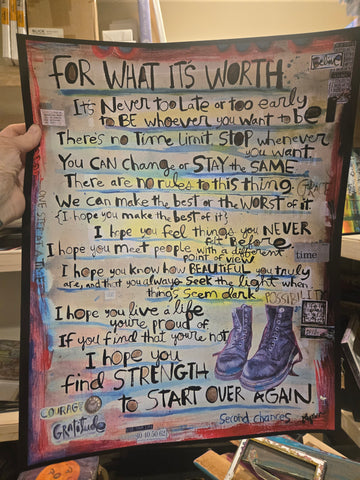 Believe
FOR WHAT IT'S WORTH
It's Never too Late or too early
to BE whoever you want to be!
There's no Time Limit. STOP whenever
you want.
You CAN Change or STAY the SAME
There are no rules to this thing.
We can make the best or the WORST of it
{I hope you make the best of it}
I hope you feel things you NEVER
felt Before
I hope you meet people with a different
point of view
time
I hope you know how BEAUTIFUL you truly
are, and that you always seek the light when
things seem dark.
POSSIBLE
I hope you live a life
you're proud of
If you find that you're not
I hope you
find STRENGTH
to START OVER AGAIN.
COURAGE
Gratitude
Second Chances
ONE STEP AT A TIME